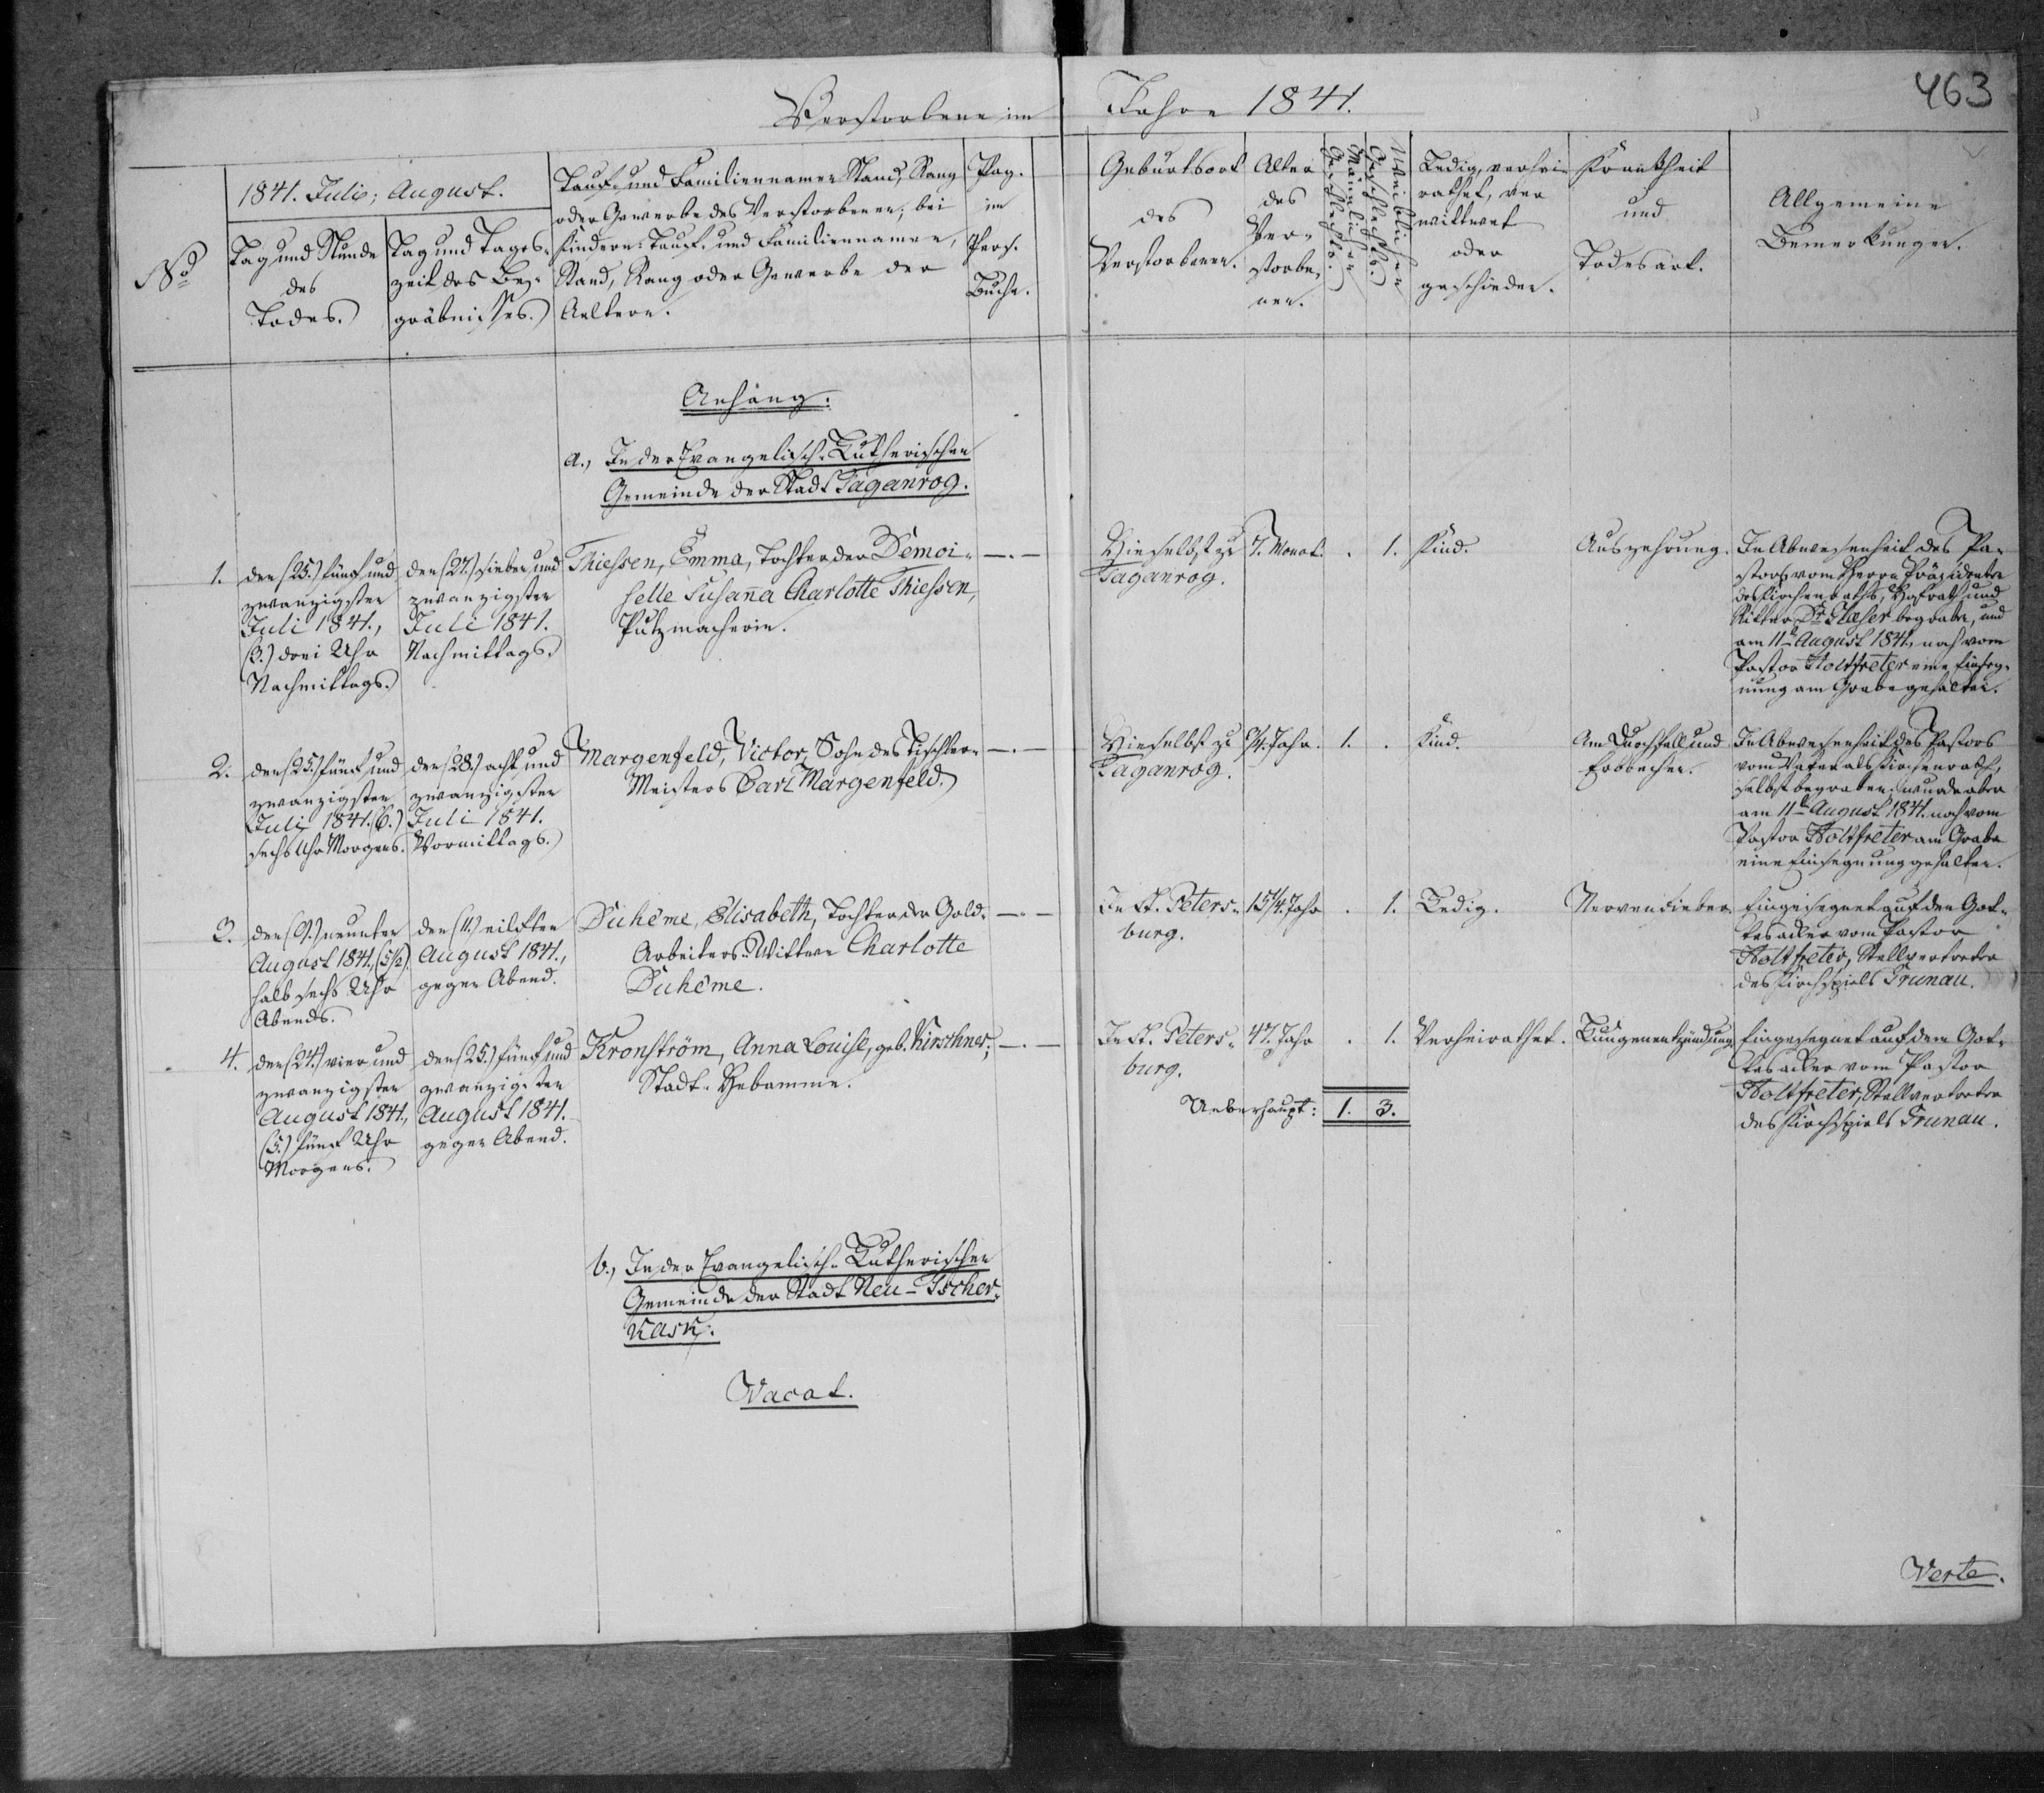 463
Verstorbene im Jahre 1841.
No
1841. Julis; August.
Tag und Stunde
des
Todes.
Tag und Tages-
zeit des Be-
gräbnisses.
Tauf- und Familiennamen Stand, Rang
oder Gewerbe des Verstorbenen; bei
Kindern: Tauf- und Familiennamen,
Stand, Rang oder Gewerbe der
Aeltern.
Pag.
im
Pers.
Buche.
Geburtsort
des
Verstorbenen.
Alter
des
Ver-
storbe-
nen.
Männlichen
Geschlechts.
Weiblichen
Geschlechts.
Ledig, verhei-
rathet, ver-
wittwet
oder
geschieden.
Krankheit
und
Todesart.
Allgemeine
Bemerkungen.
Anhang.
a., In der Evangelisch-Lutherischen
Gemeinde der Stadt Taganrog.
1.
den (25.) fünf und
zwanzigsten
Juli 1841.,
(3.) drei Uhr
Nachmittags.
den (27.) sieben und
zwanzigsten
Juli 1841.
Nachmittags.
Thiessen, Emma, Tochter der Demoi-
selle Susanna Charlotte Thiessen,
Putzmacherin.
—.—
Hieselbst zu
Taganrog.
7. Monat.
.
1.
Kind.
Auszehrung.
In Abwesenheit des Pa-
stors vom Herrn Präsidenten
des Kirchenraths, Hofrath und
Ritter Dr. begraben, und
am 11ten August 1841. noch vom
Pastor Holtfreter eine Einseg-
nung am Grabe gehalten.
2.
den (25.) fünf und
zwanzigsten
Juli 1841. (6.)
sechs Uhr Morgens.
den (28.) acht und
zwanzigsten
Juli 1841.
Vormittags.
Margenfeld, Victor, Sohn des Tischler-
Meisters Carl Margenfeld.
—.—
Hieselbst zu
Taganrog.
Jahr.
1.
.
Kind.
Am Durchfall und
Erbrechen.
In Abwesenheit des Pastors
vom Vater als Kirchenrath,
selbst begraben; wurde aber
am 11ten August 1841. noch vom
Pastor Holtfreter am Grabe
eine Einsegnung gehalten.
3.
den (9.) neunten
August 1841., (5½)
halb sechs Uhr
Abends.
den (11.) eilften
August 1841.,
gegen Abend.
Duhême, Elisabeth, Tochter der Gold-
Arbeiters-Wittwe Charlotte
Duhême.
—.—
In St. Peters-
burg.
15¼. Jahr
.
1.
Ledig.
Nervenfieber.
Eingesegnet auf dem Got-
tesacker vom Pastor
Holtfreter, Stellvertreter
des Kirchspiels Grunau.
4.
den (24.) vier und
zwanzigsten
August 1841.,
(5.) fünf Uhr
Morgens.
den (25.) fünf und
zwanzigsten
August 1841.
gegen Abend.
Kronström, Anna Louise, geb. Kirschner,
Stadt-Hebamme.
—.—
In St. Peters-
burg.
47. Jahr
.
1.
Verheirathet.
Lungenentzündung.
Eingesegnet auf dem Got-
tesacker vom Pastor
Holtfreter, Stellvertreter
des Kirchspiels Grunau.
Ueberhaupt: 1. 3.
b., In der Evangelisch-Lutherischen
Gemeinde der Stadt Neu-Tscher-
kask.
Vacat.
Verte.